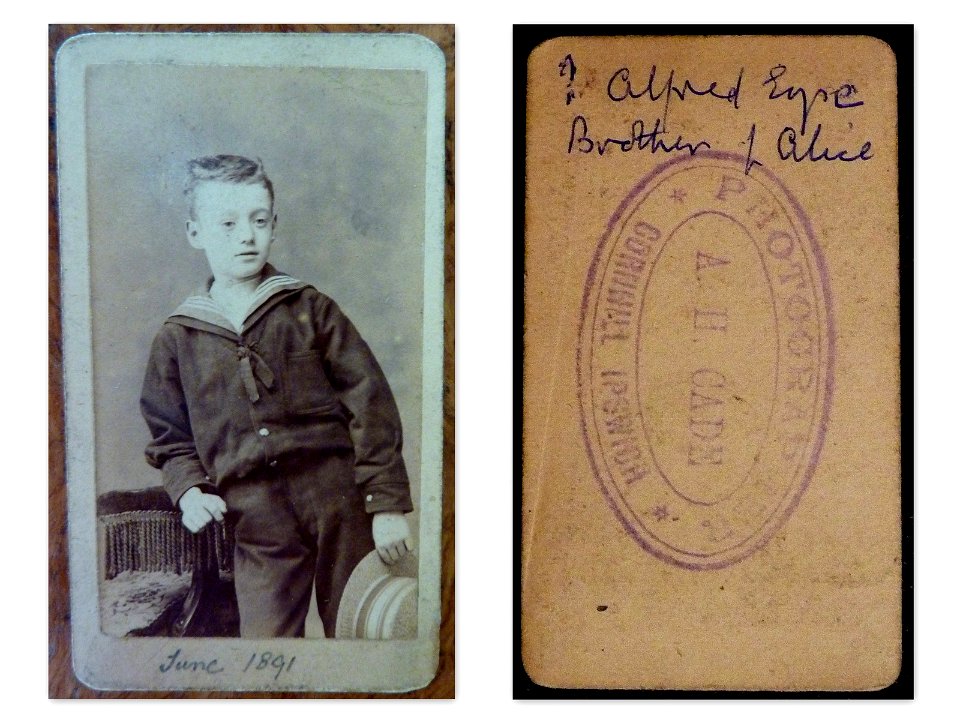 June 1891
? Alfred Eyre
Brother of Alice
PHOTOGRAPHER
A. H. CADE
CORNHILL IPSWICH